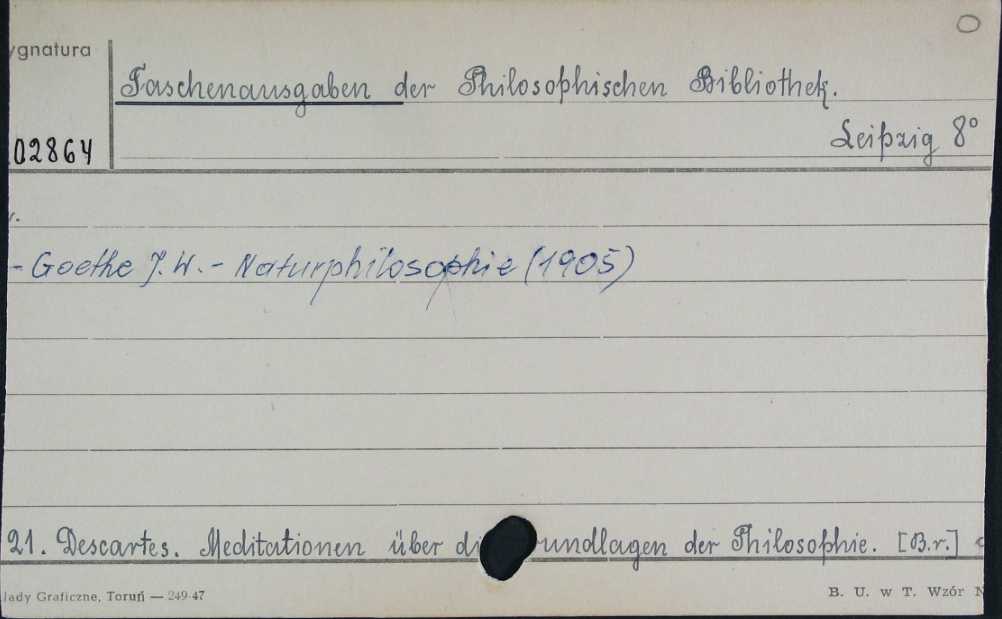 ygnatura
Taschenausgaben der Philosophischen Bibliothek.
Leipzig 8°
02864
- Goethe J. W. - Naturphilosophie (1905)
21. Descartes. Meditationen über di rundlagen der Philosophie. [B.r.]
lady Graficzne, Toruń — 249-47
B. U. w T. Wzór N